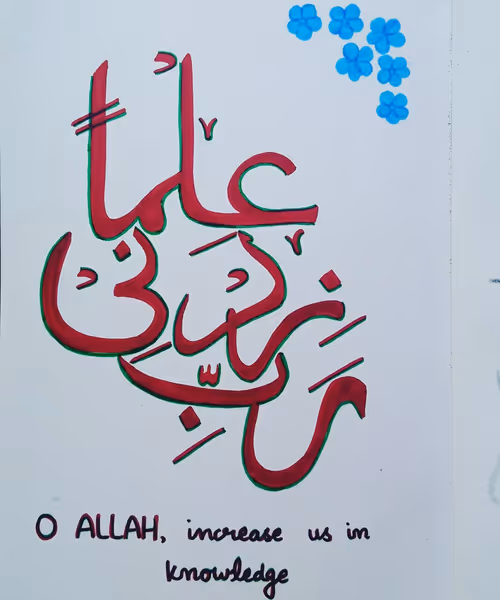 رَبِّ
زِدْنِى
عِلْماً
O ALLAH, increase us in
knowledge